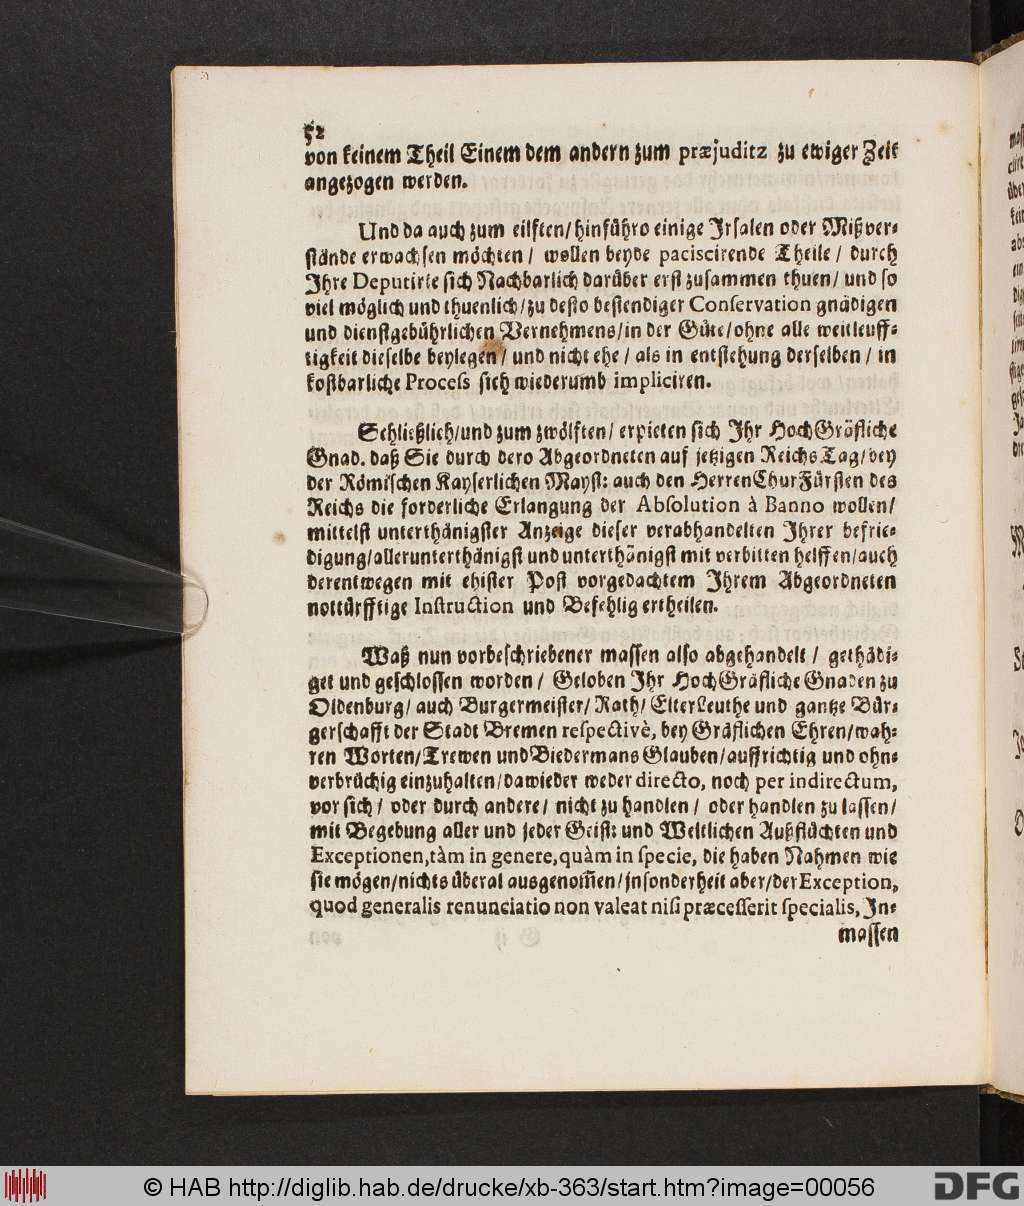 52
von keinem Theil Einem dem andern zum præjuditz zu ewiger Zeit
angezogen werden.
Und da auch zum eilften/ hinführo einige Irsalen oder Mißver-
stände erwachsen möchten / wollen beyde paciscirende Theile / durch
Ihre Deputirte sich Nachbarlich darüber erst zusammen thuen/ und so
viel möglich und thuenlich/ zu desto bestendiger Conservation gnädigen
und dienstgebührlichen Vernehmens/ in der Güte/ ohne alle weitleuff-
tigkeit dieselbe beylegen/ und nicht ehe / als in entstehung derselben / in
kostbarliche Process sich wiederumb impliciren.
Schließlich/ und zum zwölften/ erpieten sich Ihr HochGräfliche
Gnad. daß Sie durch dero Abgeordneten auf jetzigen ReichsTag/ bey
der Römischen Kayserlichen Mayst: auch den HerrenChurFürsten des
Reichs die forderliche Erlangung der Absolution à Banno wollen/
mittelst unterthänigster Anzeige dieser verabhandelten Ihrer befrie-
digung/ allerunterthänigst und unterthänigst mit verbitten helffen/ auch
derentwegen mit ehister Post vorgedachtem Ihrem Abgeordneten
nottürfftige Instruction und Befehlig ertheilen.
Waß nun vorbeschriebener massen also abgehandelt / gethädi-
get und geschlossen worden / Geloben Ihr HochGräfliche Gnaden zu
Oldenburg/ auch Burgermeister/ Rath/ ElterLeuthe und gantze Bür-
gerschafft der Stadt Bremen respectivè, bey Gräflichen Ehren/ wah-
ren Worten/ Trewen und Biedermans Glauben/ auffrichtig und ohn-
verbrüchig einzuhalten/ dawieder weder directo, noch per indirectum,
vor sich / oder durch andere / nicht zu handlen / oder handlen zu lassen/
mit Begebung aller und jeder Geist: und Weltlichen Außflüchten und
Exceptionen, tàm in genere, quàm in specie, die haben Nahmen wie
sie mögen/ nichts überal ausgenom̄en/ insonderheit aber/ der Exception,
quod generalis renunciatio non valeat nisi præcesserit specialis, In-
massen
© HAB http://diglib.hab.de/drucke/xb-363/start.htm?image=00056
DFG